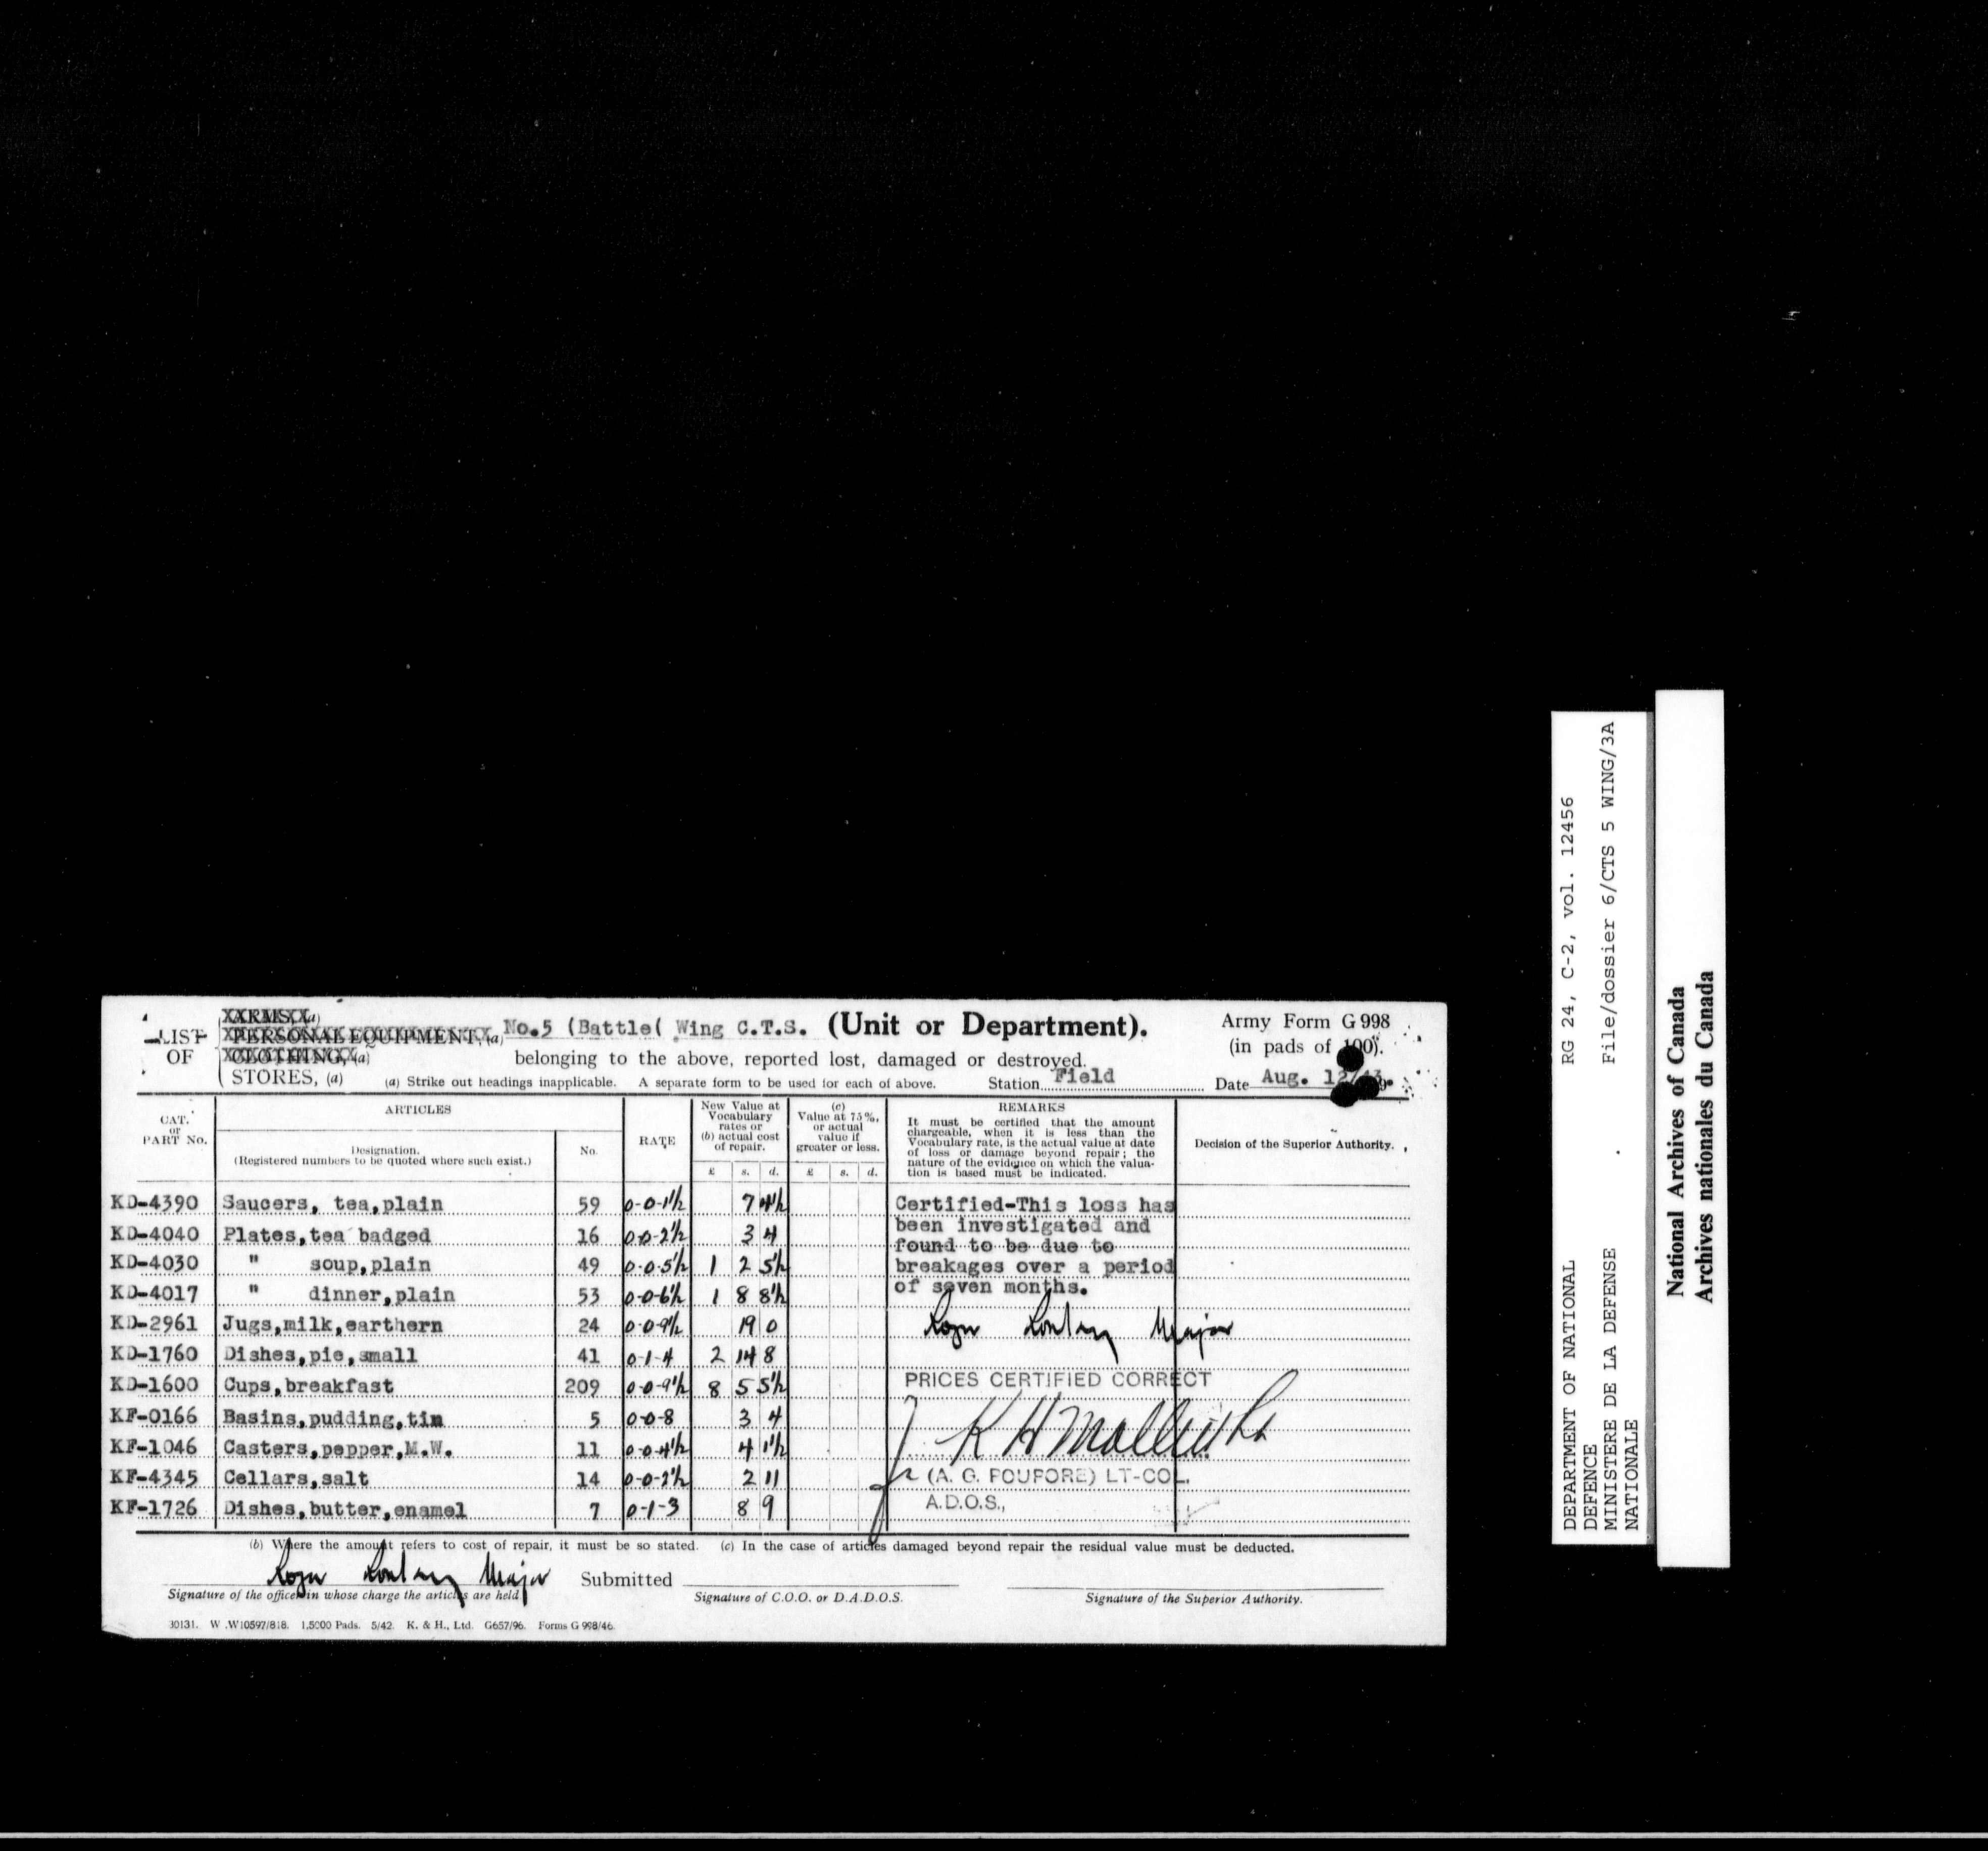 LIST OF
ARMS, (a)
PERSONAL EQUIPMENT, (a)
CLOTHING, (a)
STORES, (a)
No.5 (Battle( Wing C.T.S. (Unit or Department).
belonging to the above, reported lost, damaged or destroyed.
(a) Strike out headings inapplicable. A separate form to be used for each of above. Station Field Date Aug. 12/43
Army Form G 998
(in pads of 100).
CAT. or PART No.
ARTICLES
Designation.
(Registered numbers to be quoted where such exist.)
No.
RATE
New Value at Vocabulary rates or (b) actual cost of repair.
£ s. d.
(c) Value at 75%, or actual value if greater or less.
£ s. d.
REMARKS
It must be certified that the amount
chargeable, when it is less than the
Vocabulary rate, is the actual value at date
of loss or damage beyond repair; the
nature of the evidence on which the valua-
tion is based must be indicated.
Decision of the Superior Authority.
KD-4390 Saucers, tea,plain 59 0-0-1½ 7 4½
KD-4040 Plates,tea badged 16 0-0-2½ 3 4
KD-4030 " soup,plain 49 0-0-5½ 1 2 5½
KD-4017 " dinner,plain 53 0-0-6½ 1 8 8½
KD-2961 Jugs,milk,earthern 24 0-0-9½ 19 0
KD-1760 Dishes,pie,small 41 0-1-4 2 14 8
KD-1600 Cups,breakfast 209 0-0-9½ 8 5 5½
KF-0166 Basins,pudding,tin 5 0-0-8 3 4
KF-1046 Casters,pepper,M.W. 11 0-0-4½ 4 1½
KF-4345 Cellars,salt 14 0-0-2½ 2 11
KF-1726 Dishes,butter,enamel 7 0-1-3 8 9
Certified-This loss has
been investigated and
found to be due to
breakages over a period
of seven months.
Major
PRICES CERTIFIED CORRECT
(A. G. POUPORE) LT-COL.
A.D.O.S.,
(b) Where the amount refers to cost of repair, it must be so stated. (c) In the case of articles damaged beyond repair the residual value must be deducted.
Major Submitted
Signature of the officer in whose charge the articles are held
Signature of C.O.O. or D.A.D.O.S.
Signature of the Superior Authority.
30131. W .W10597/818. 1,5000 Pads. 5/42. K. & H., Ltd. G657/96. Forms G 998/46.
DEPARTMENT OF NATIONAL RG 24, C-2, vol. 12456
DEFENCE
MINISTERE DE LA DEFENSE File/dossier 6/CTS 5 WING/3A
NATIONALE
National Archives of Canada
Archives nationales du Canada